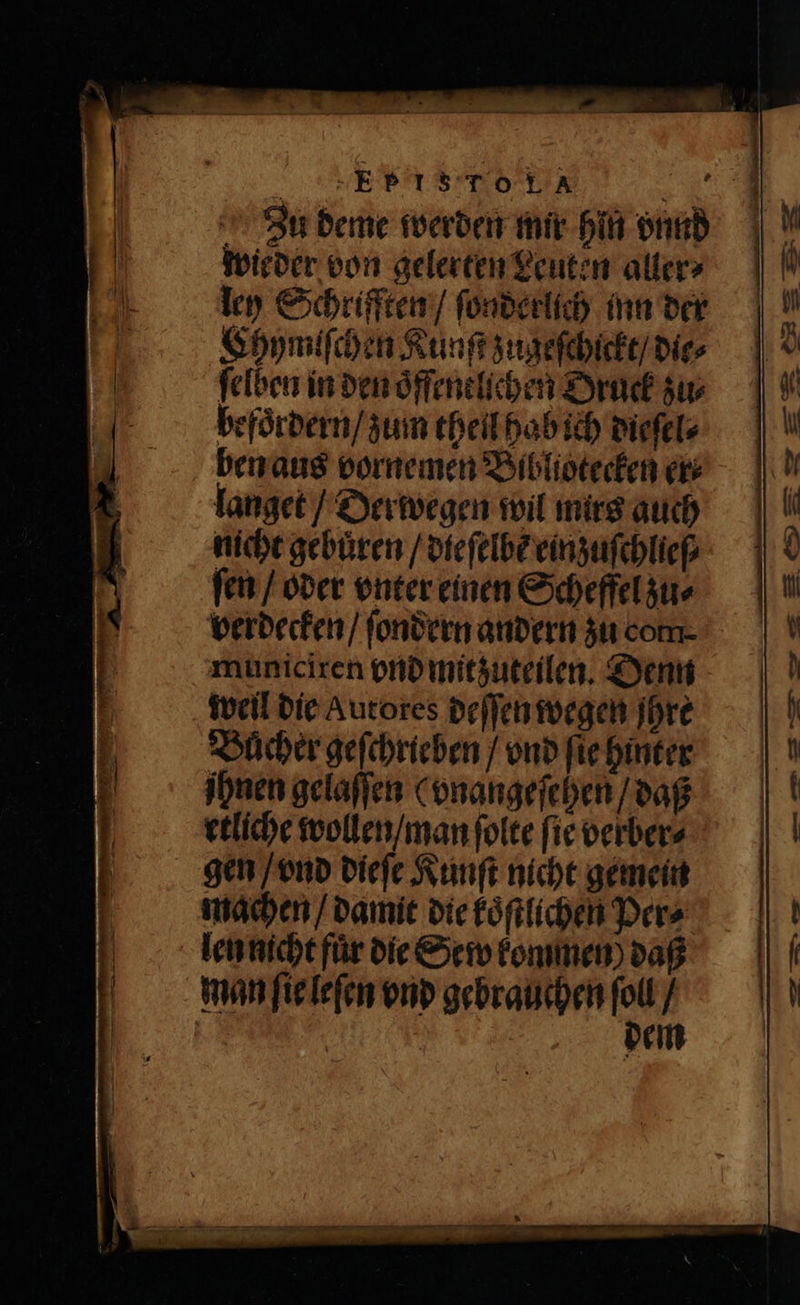 EPISTOLA
Zu deme werden mir hin vnnd
wieder von gelerten Leuten aller⸗
ley Schrifften / ſonderlich inn der
Chymiſchen Kunſt zugeſchickt / die⸗
ſelben in den oͤffentlichen Druck zu⸗
befoͤrdern / zum theil hab ich dieſel⸗
ben aus vornemen Bibliotecken er⸗
langet / Derwegen wil mirs auch
nicht gebuͤren / dieſelbẽ einzuſchlieſ⸗
ſen / oder vnter einen Scheffel zu⸗
verdecken / ſondern andern zu com-
municiren vnd mitzuteilen. Denn
weil die Autores deſſen wegen jhre
Buͤcher geſchrieben / vnd ſie hinter
jhnen gelaſſen (vnangeſehen / daß
etliche wollen / man ſolte ſie verber⸗
gen / vnd dieſe Kunſt nicht gemein
machen / damit die koͤſtlichen Per⸗
len nicht fuͤr die Sew kommen) daß
man ſie leſen vnd gebrauchen ſoll /
dem